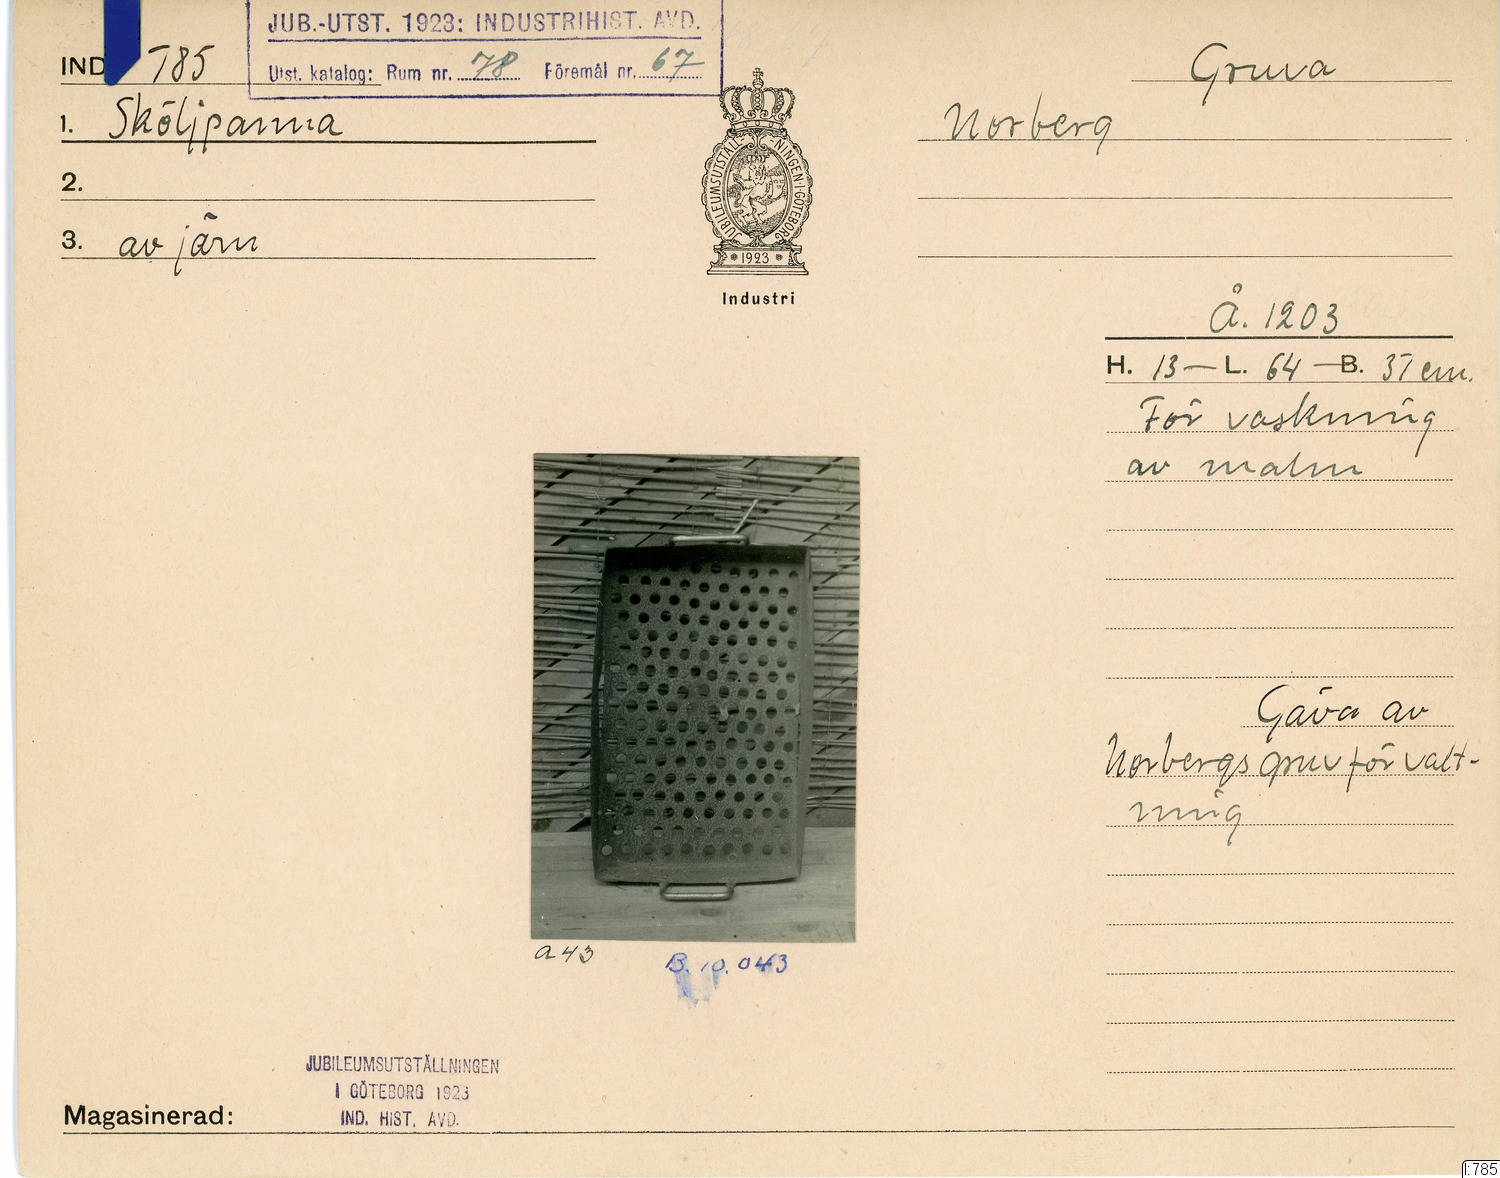 JUB.-UTST. 1923: INDUSTRIHIST. AVD.
Utst. katalog: Rum nr. 78 Föremål nr. 67
IND 785
1. Sköljpanna
2.
3. av järn
JUBILEUMSUTSTÄLL-NINGEN·I·GÖTEBORG
1923
Industri
Gruva
Norberg
Å. 1203
H. 13 — L. 64 — B. 37 cm.
För vaskning
av malm
Gåva av
Norbergs gruvförvalt-
ning
a 43
B. 10.043
JUBILEUMSUTSTÄLLNINGEN
I GÖTEBORG 1923
IND. HIST. AVD.
Magasinerad:
I:785